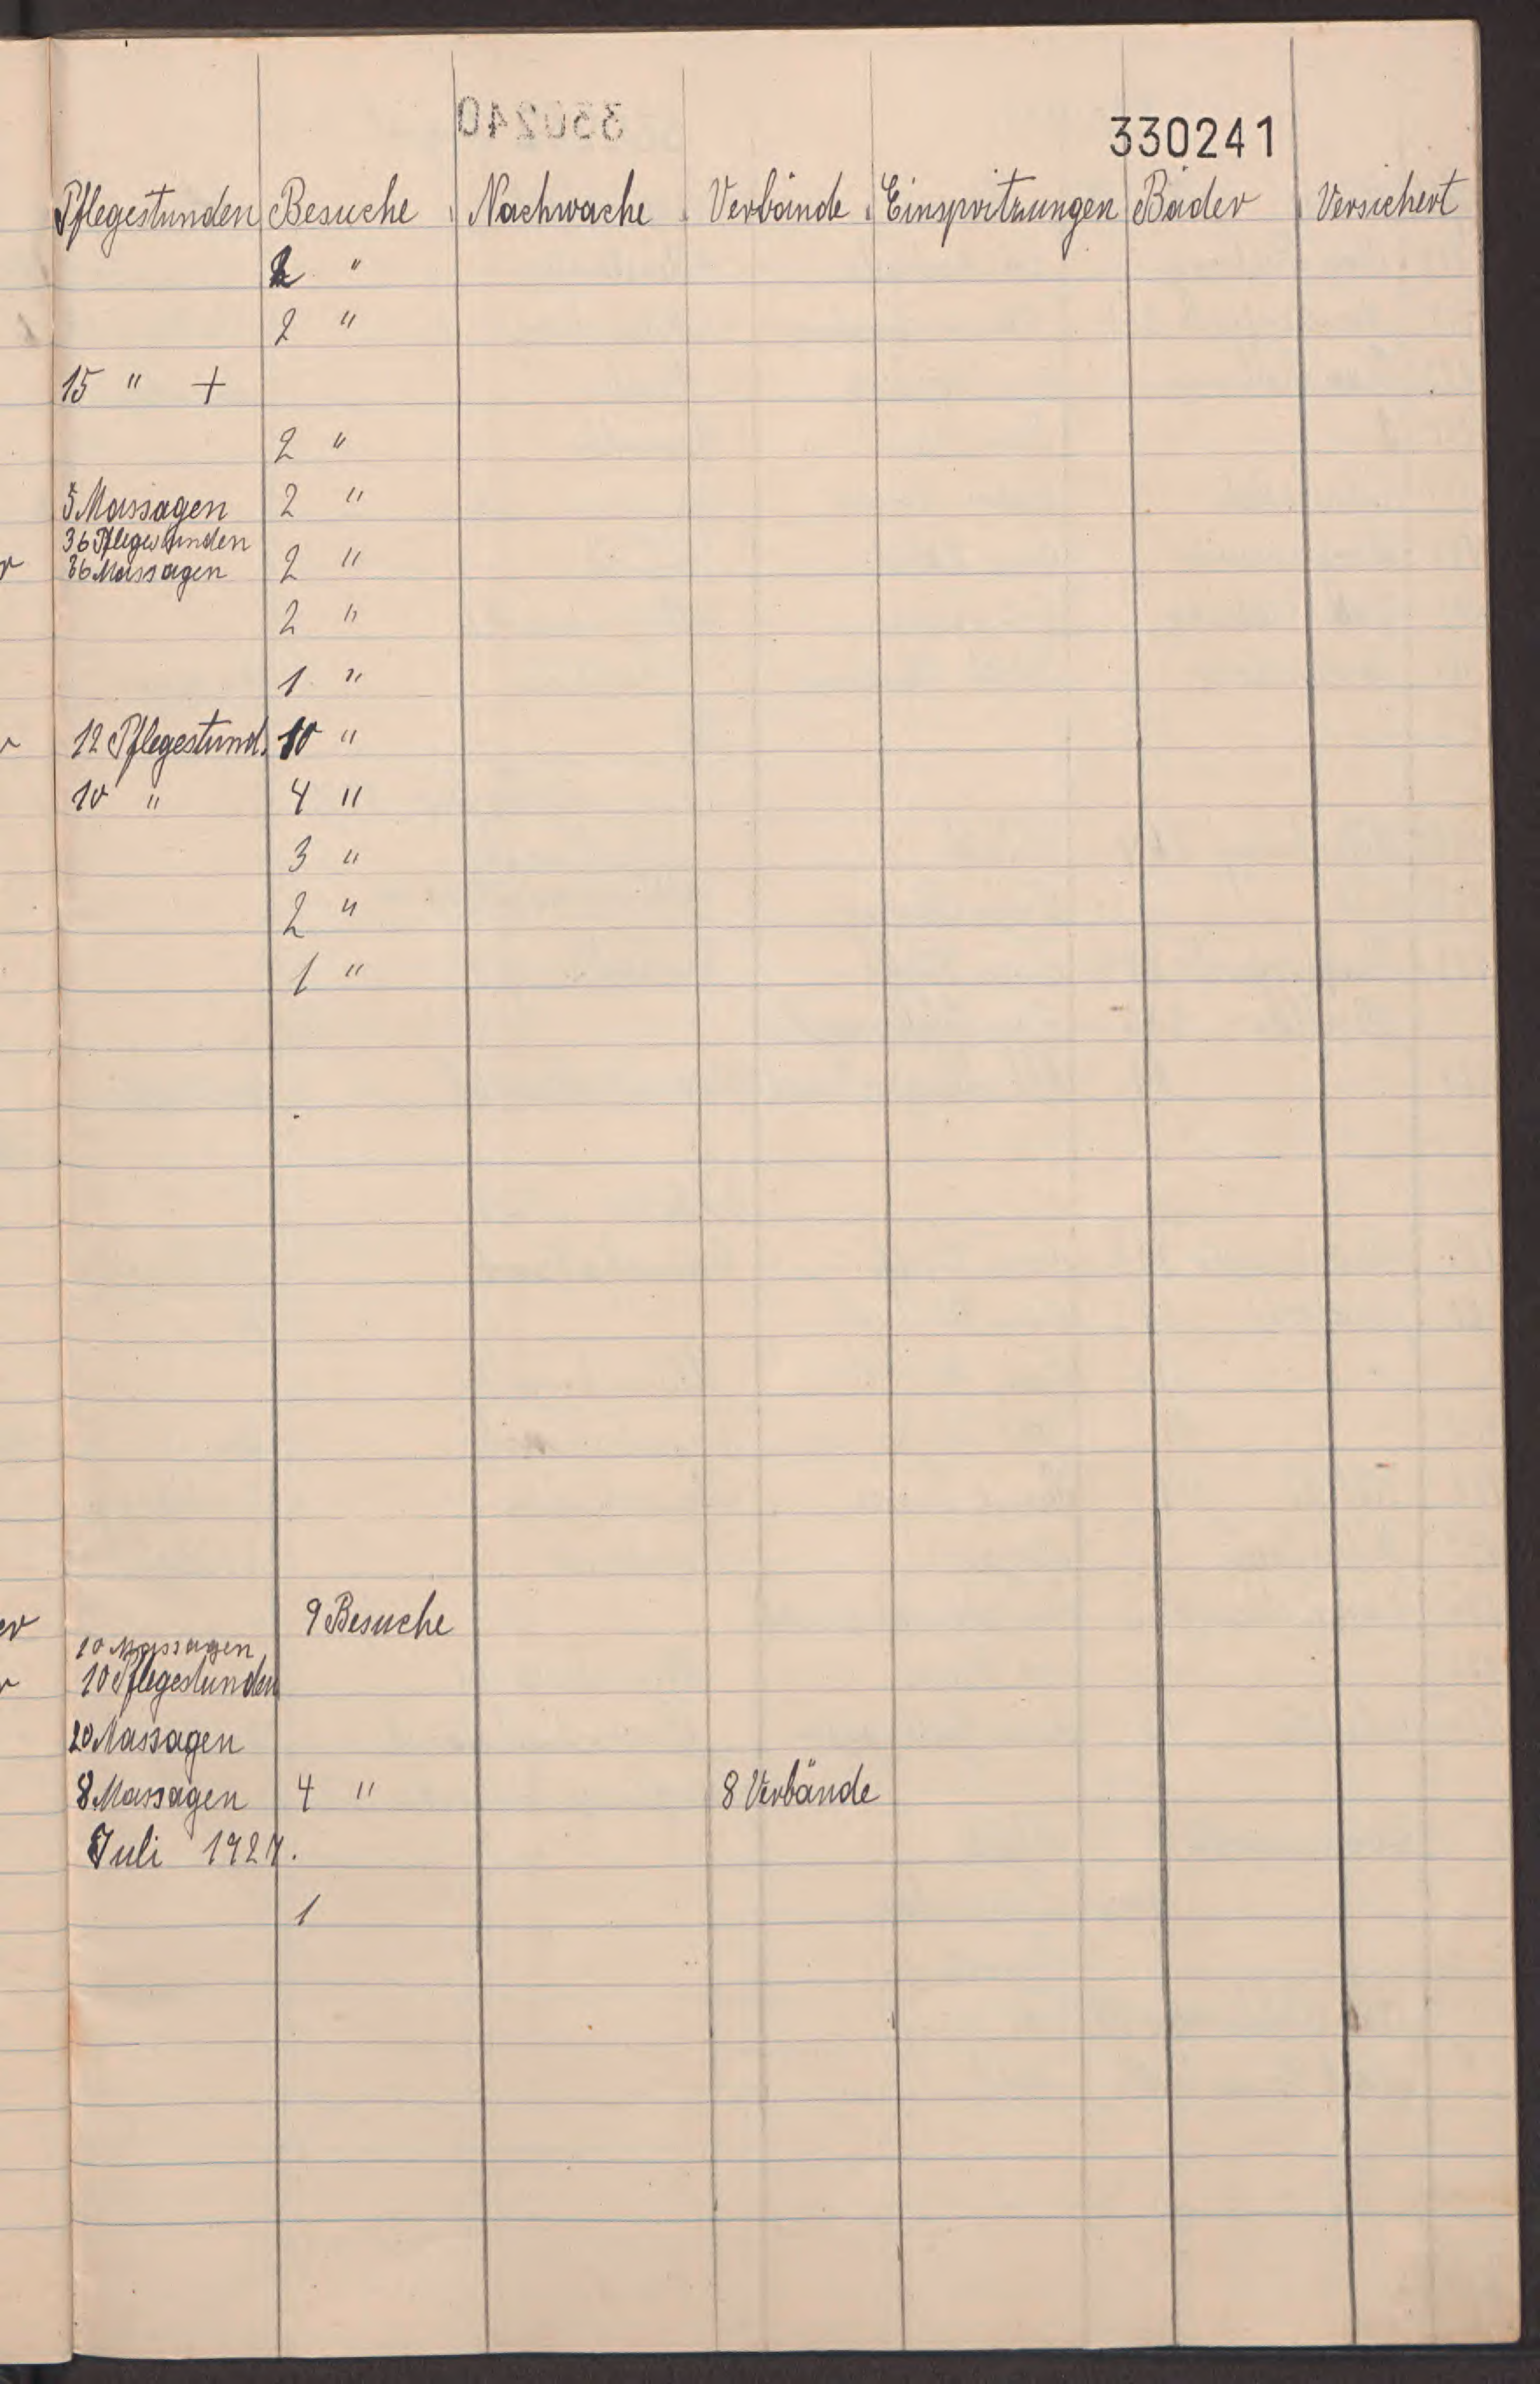 330241
Pflegestunden Besuche Nachwache Verbände Einspritzungen Bäder Versichert
2 "
2 "
15 " +
2 "
5 Massagen 2 "
36 Pflegestunden
36 Massagen 2 "
2 "
1 "
12 Pflegestund. 10 "
10 " 4 "
3 "
2 "
1 "
9 Besuche
10 Massagen
10 Pflegestunden
20 Massagen
8 Massagen 4 " 8 Verbände
Juli 1927.
1